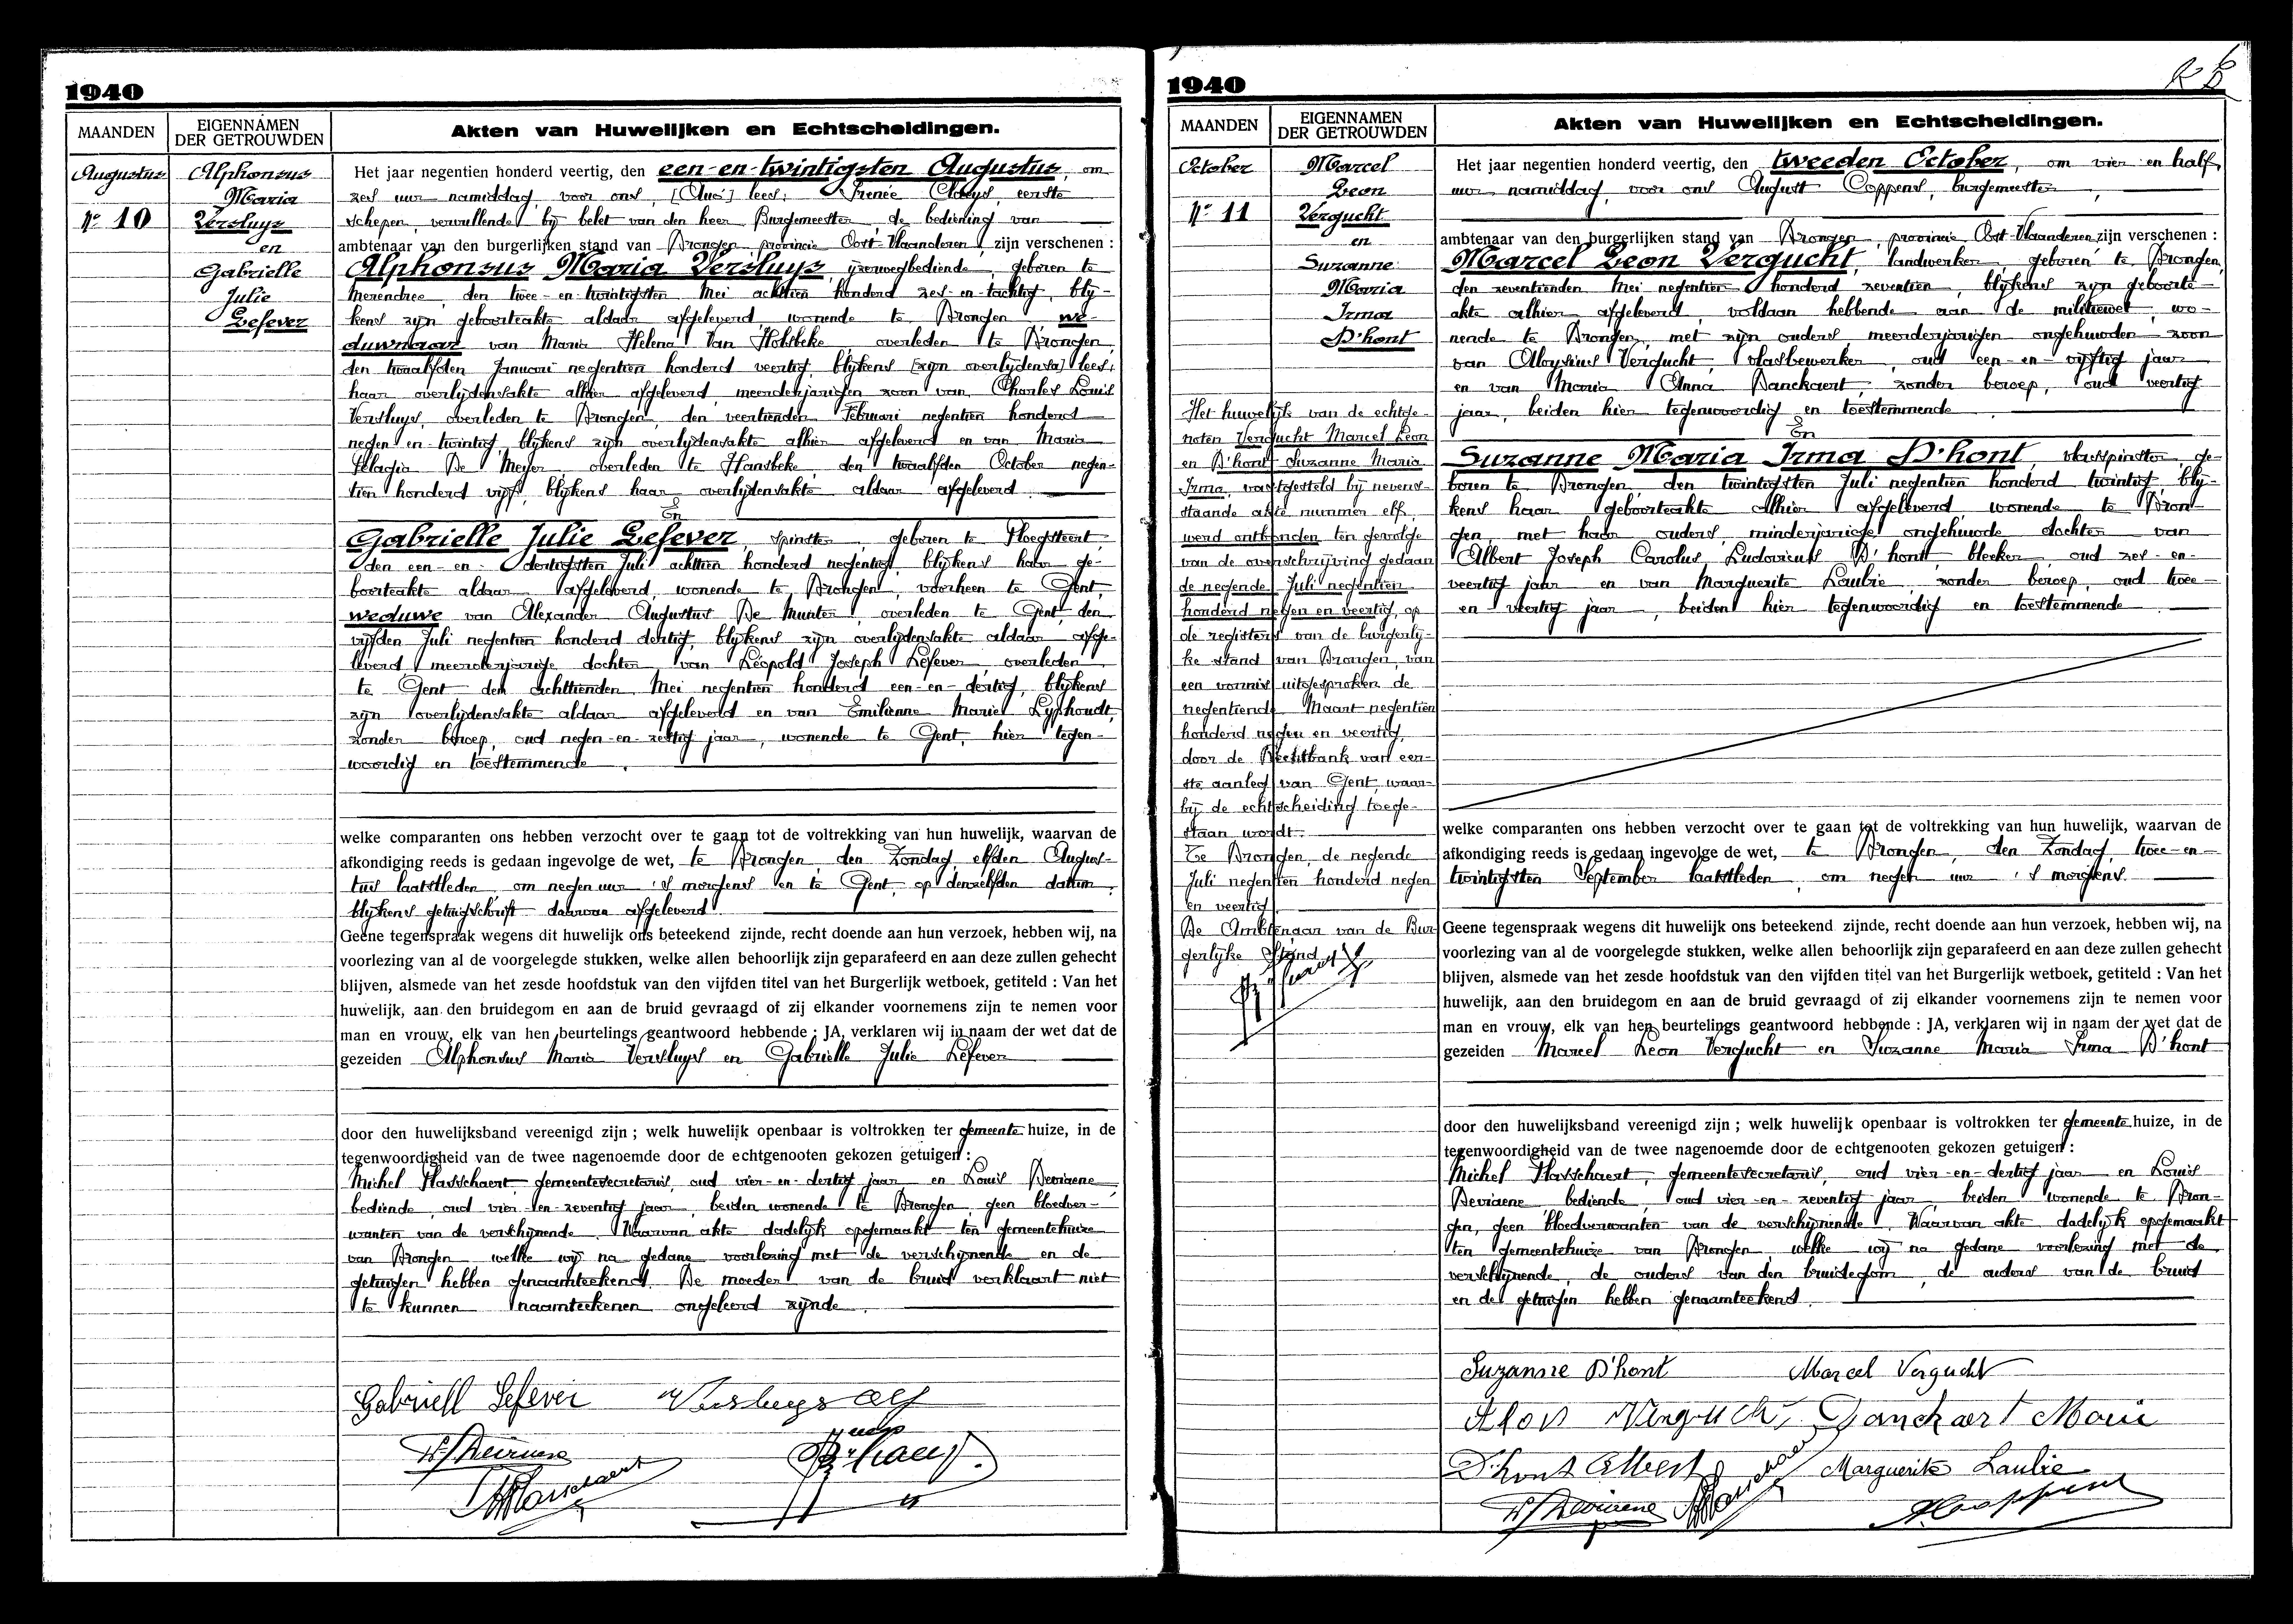 1940
MAANDEN
EIGENNAMEN
DER GETROUWDEN
Akten van Huwelijken en Echtscheidingen.
Augustus
Nr 10
Alphonsus
Maria
Versluys
en
Gabrielle
Julie
Lefever
Het jaar negentien honderd veertig, den een-en-twintigsten Augustus, om
zes uur namiddag, voor ons, lees: Irenée Claeys, eerste
schepen, vervullende bij belet van den heer Burgemeester, de bediening van
ambtenaar van den burgerlijken stand van Drongen, provincie Oost-Vlaanderen, zijn verschenen :
Alphonsus Maria Versluys, ijzerwegbediende, geboren te
Merendree, den twee-en-twintigsten Mei achttien honderd zes-en-tachtig, blij-
kens zijn geboorteakte aldaar afgeleverd, wonende te Drongen, we-
duwnaar van Maria Helena Van Holsbeke, overleden te Drongen,
den twaalfden Januari negentien honderd veertig, blijkens [zijn overlijdensa] lees:
haar overlijdensakte alhier afgeleverd, meerderjarigen zoon van Charles Louis
Versluys, overleden te Drongen, den veertienden Februari negentien honderd
negen-en-twintig, blijkens zijn overlijdensakte alhier afgeleverd en van Maria
Pelagia De Meyer, overleden te Hansbeke, den twaalfden October negen-
tien honderd vijf, blijkens haar overlijdensakte aldaar afgeleverd.
En
Gabrielle Julie Lefever, spinster, geboren te Ploegsteert,
den een-en-dertigsten Juli achttien honderd negentig, blijkens haar ge-
boorteakte aldaar afgeleverd, wonende te Drongen, voorheen te Gent,
weduwe van Alexander Augustus De Munter, overleden te Gent, den
vijfden Juli negentien honderd dertig, blijkens zijn overlijdensakte aldaar afge-
leverd, meerderjarige dochter van Léopold Joseph Lefever, overleden
te Gent den achttienden Mei negentien honderd een-en-dertig, blijkens
zijn overlijdensakte aldaar afgeleverd en van Emilienne Marie Lyphoudt,
zonder beroep, oud negen-en-zestig jaar, wonende te Gent, hier tegen-
woordig en toestemmende.
welke comparanten ons hebben verzocht over te gaan tot de voltrekking van hun huwelijk, waarvan de
afkondiging reeds is gedaan ingevolge de wet, te Drongen, den Zondag, elfden Augus-
tus laatstleden, om negen uur 's morgens en te Gent, op denzelfden datum,
blijkens getuigschrift daarvan afgeleverd.
Geene tegenspraak wegens dit huwelijk ons beteekend zijnde, recht doende aan hun verzoek, hebben wij, na
voorlezing van al de voorgelegde stukken, welke allen behoorlijk zijn geparafeerd en aan deze zullen gehecht
blijven, alsmede van het zesde hoofdstuk van den vijfden titel van het Burgerlijk wetboek, getiteld : Van het
huwelijk, aan den bruidegom en aan de bruid gevraagd of zij elkander voornemens zijn te nemen voor
man en vrouw, elk van hen beurtelings geantwoord hebbende : JA, verklaren wij in naam der wet dat de
gezeiden Alphonsus Maria Versluys en Gabrielle Julie Lefever
door den huwelijksband vereenigd zijn ; welk huwelijk openbaar is voltrokken ter gemeentehuize, in de
tegenwoordigheid van de twee nagenoemde door de echtgenooten gekozen getuigen :
Michel Hasschaert, gemeentesecretaris, oud vier-en-dertig jaar, en Louis Devriene,
bediende, oud vier-en-zeventig jaar, beiden wonende te Drongen, geen bloedver-
wanten van de verschijnende. Waarvan akte dadelijk opgemaakt ten gemeentehuize
van Drongen, welke wij na gedane voorlezing met de verschijnende en de
getuigen hebben genaamteekend. De moeder van de bruid verklaart niet
te kunnen naamteekenen ongeleerd zijnde.
Gabriell Lefever Versluys Alf
1940
MAANDEN
EIGENNAMEN
DER GETROUWDEN
Akten van Huwelijken en Echtscheidingen.
October
Nr 11
Marcel
Leon
Vergucht
en
Suzanne
Maria
Irma
D'hont
Het huwelijk van de echtge-
noten Vergucht Marcel Leon
en D'hont Suzanne Maria
Irma, vastgesteld bij nevens-
staande akte nummer elf,
werd ontbonden ten gevolge
van de overschrijving gedaan
de negende Juli negentien
honderd negen en veertig, op
de registers van de burgerlij-
ke stand van Drongen, van
een vonnis uitgesproken de
negentiende Maart negentien
honderd negen en veertig,
door de Rechtbank van eer-
ste aanleg van Gent, waar-
bij de echtscheiding toege-
staan wordt.
Te Drongen, de negende
Juli negentien honderd negen
en veertig.
De Ambtenaar van de Bur-
gerlijke Stand
Het jaar negentien honderd veertig, den tweeden October, om vier en half
uur namiddag, voor ons August Coppens, burgemeester,
ambtenaar van den burgerlijken stand van Drongen, provincie Oost-Vlaanderen, zijn verschenen :
Marcel Leon Vergucht, landwerker, geboren te Drongen,
den zeventienden Mei negentien honderd zeventien, blijkens zijn geboorte-
akte alhier afgeleverd, voldaan hebbende aan de militiewet, wo-
nende te Drongen, met zijn ouders, meerderjarigen ongehuwden zoon
van Aloysius Vergucht, vlasbewerker, oud een-en-vijftig jaar
en van Maria Anna Danckaert, zonder beroep, oud veertig
jaar, beiden hier tegenwoordig en toestemmende.
En
Suzanne Maria Irma D'hont, vlasspinster, ge-
boren te Drongen, den twintigsten Juli negentien honderd twintig, blij-
kens haar geboorteakte alhier afgeleverd, wonende te Dron-
gen, met haar ouders, minderjarige ongehuwde dochter van
Albert Joseph Carolus Ludovicus D'hont, bleeker, oud zes-en-
veertig jaar en van Marguerite Laubie, zonder beroep, oud twee-
en-veertig jaar, beiden hier tegenwoordig en toestemmende
welke comparanten ons hebben verzocht over te gaan tot de voltrekking van hun huwelijk, waarvan de
afkondiging reeds is gedaan ingevolge de wet, te Drongen, den Zondag, twee-en-
twintigsten September laatstleden, om negen uur 's morgens.
Geene tegenspraak wegens dit huwelijk ons beteekend zijnde, recht doende aan hun verzoek, hebben wij, na
voorlezing van al de voorgelegde stukken, welke allen behoorlijk zijn geparafeerd en aan deze zullen gehecht
blijven, alsmede van het zesde hoofdstuk van den vijfden titel van het Burgerlijk wetboek, getiteld : Van het
huwelijk, aan den bruidegom en aan de bruid gevraagd of zij elkander voornemens zijn te nemen voor
man en vrouw, elk van hen beurtelings geantwoord hebbende : JA, verklaren wij in naam der wet dat de
gezeiden Marcel Leon Vergucht en Suzanne Maria Irma D'hont
door den huwelijksband vereenigd zijn ; welk huwelijk openbaar is voltrokken ter gemeentehuize, in de
tegenwoordigheid van de twee nagenoemde door de echtgenooten gekozen getuigen :
Michel Hasschaert, gemeentesecretaris, oud vier-en-dertig jaar en Louis
Devriene bediende, oud vier-en-zeventig jaar, beiden wonende te Dron-
gen, geen bloedverwanten van de verschijnende. Waarvan akte dadelijk opgemaakt
ten gemeentehuize van Drongen, welke wij na gedane voorlezing met de
verschijnende, de ouders van den bruidegom, de ouders van de bruid
en de getuigen hebben genaamteekend.
Suzanne D'hont Marcel Vergucht
Alois Vergucht Danckaert Marie
D'hont Albert Marguerite Laubie